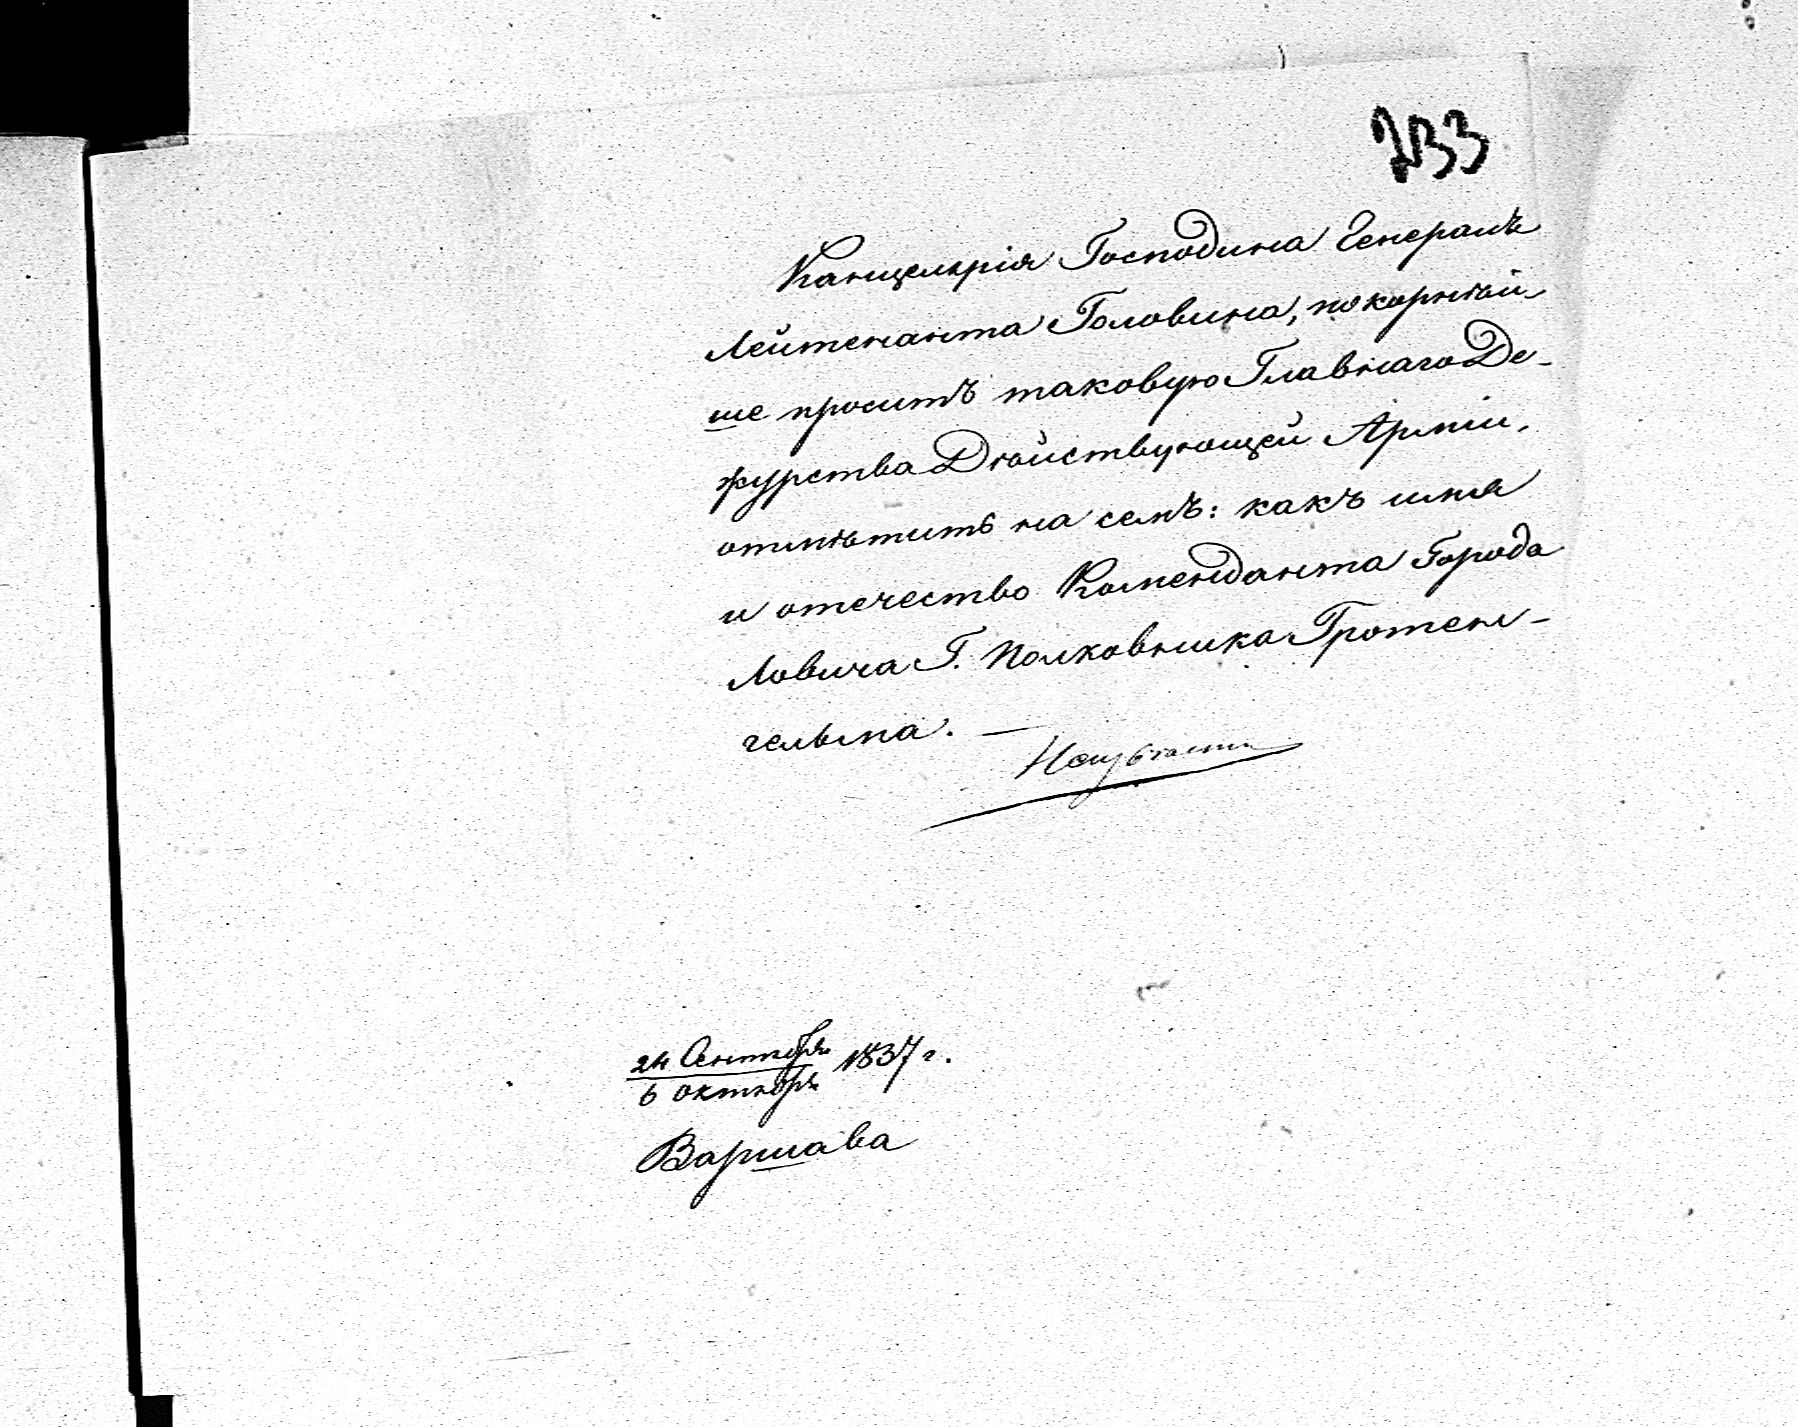 233
Канцелярія Господина Генералъ
Лейтенанта Головина, покорнѣй
ше проситъ таковую Главнаго Де-
журства Дѣйствующей Арміи,
отмѣтить на семъ: какъ имя
и отечество Коменданта Города
Ловича Г. Полковника Гротен-
гельма. —
24 Сентября
6 октября 1837 г.
Варшава